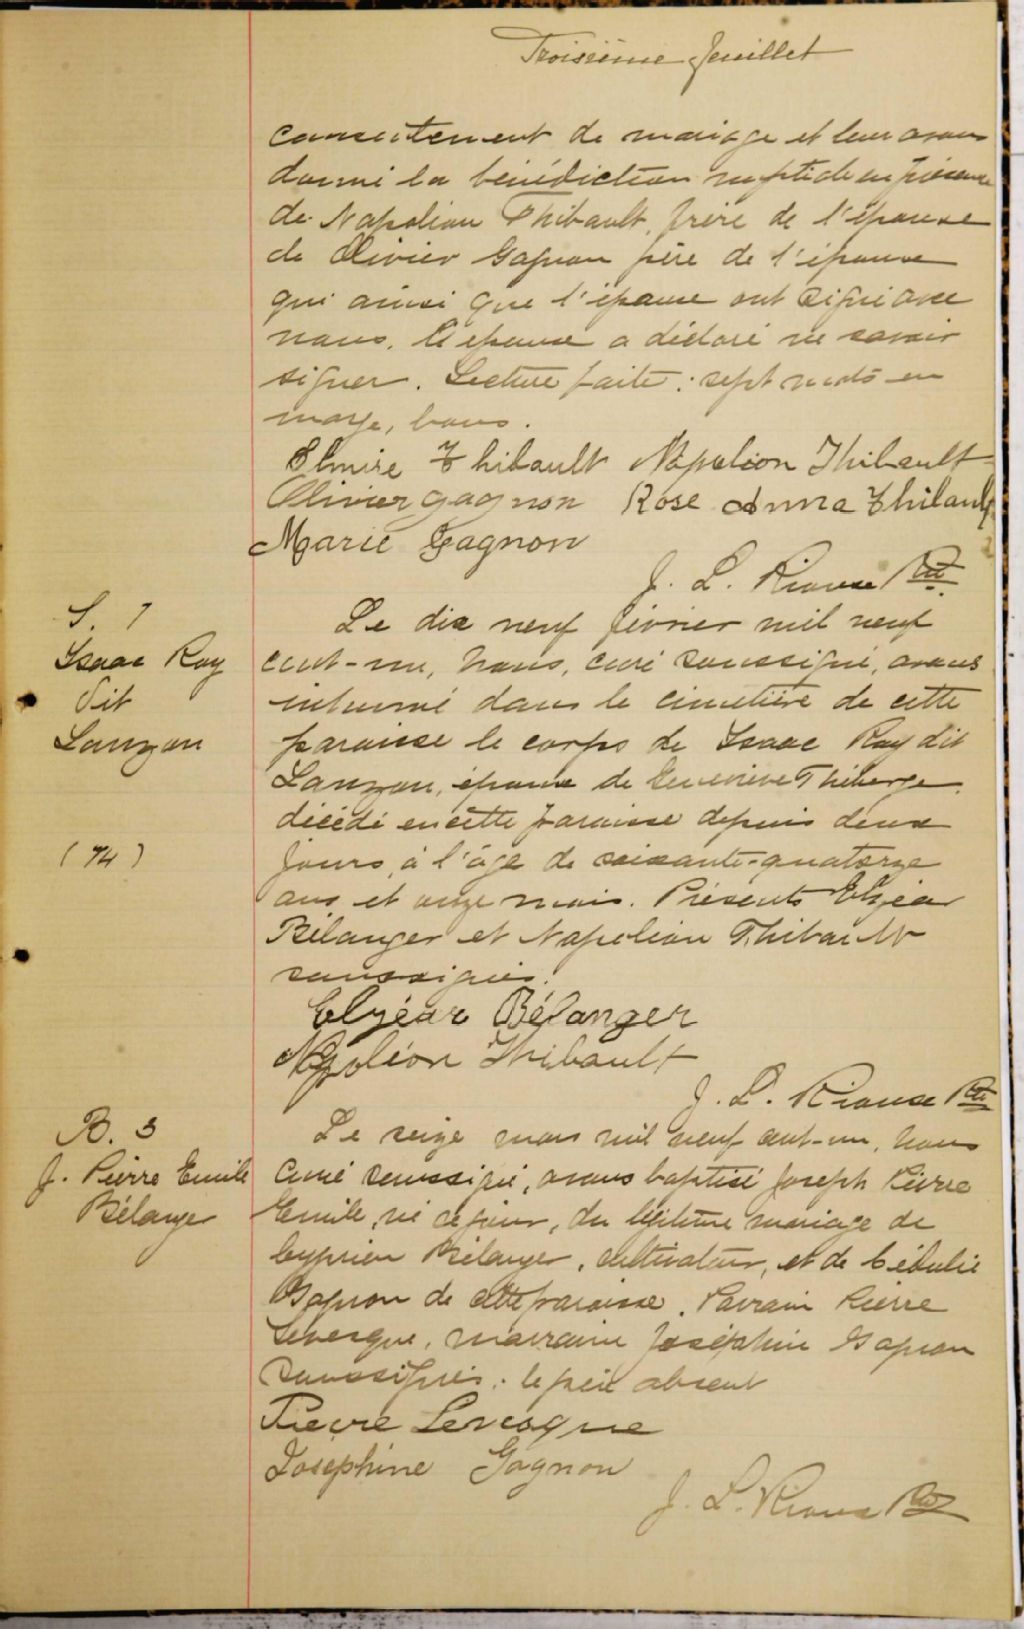 Troisième feuillet
consentement de mariage et leur avons
donné la bénédiction nuptiale en présence
de Napoléon Thibault, frère de l'épouse
de Olivier Gagnon père de l'épouse
qui ainsi que l'épouse ont signé avec
nous. L'époux a déclaré ne savoir
signer. Lecture faite; sept mots en
marge, bons.
Elmire Thibault Napoléon Thibault
Olivier Gagnon Rose Anna Thibault
Marie Gagnon
J. L. Rioux Ptre
S. 7
Isaac Roy
dit
Lauzon
(74)
Le dix neuf février mil neuf
cent-un, nous, curé soussigné, avons
inhumé dans le cimetière de cette
paroisse le corps de Isaac Roy dit
Lauzon, époux de Geneviève Théberge
décédé en cette paroisse depuis deux
jours, à l'âge de soixante-quatorze
ans et onze mois. Présents Elzéar
Bélanger et Napoléon Thibault
soussignés.
Elzéar Bélanger
Napoléon Thibault
J. L. Rioux Ptre
B. 3
J. Pierre Emile
Bélanger
Le seize mars mil neuf cent-un, nous
curé soussigné, avons baptisé Joseph Pierre
Emile, né ce jour, du légitime mariage de
Cyprien Bélanger, cultivateur, et de Cédulie
Gagnon de cette paroisse. Parrain Pierre
Levesque, marraine Joséphine Gagnon
soussignés; le père absent
Pierre Levesque
Josephine Gagnon
J. L. Rioux Ptre